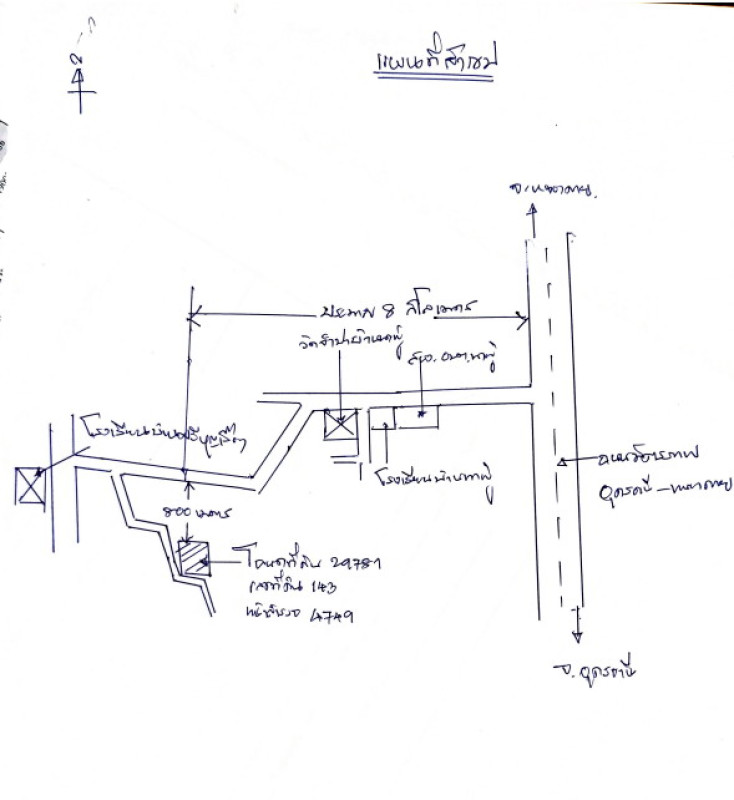 แผนที่สังเขป
จ.หนองคาย
ประมาณ 8 กิโลเมตร
วัดจำปาบ้านนาพู่
สนง.อบต.นาพู่
โรงเรียนบ้าน
โรงเรียนบ้านนาพู่
ถนนมิตรภาพ
อุดรธานี - หนองคาย
800 เมตร
โฉนดที่ดิน 29781
เลขที่ดิน 143
หน้าสำรวจ 4749
จ.อุดรธานี